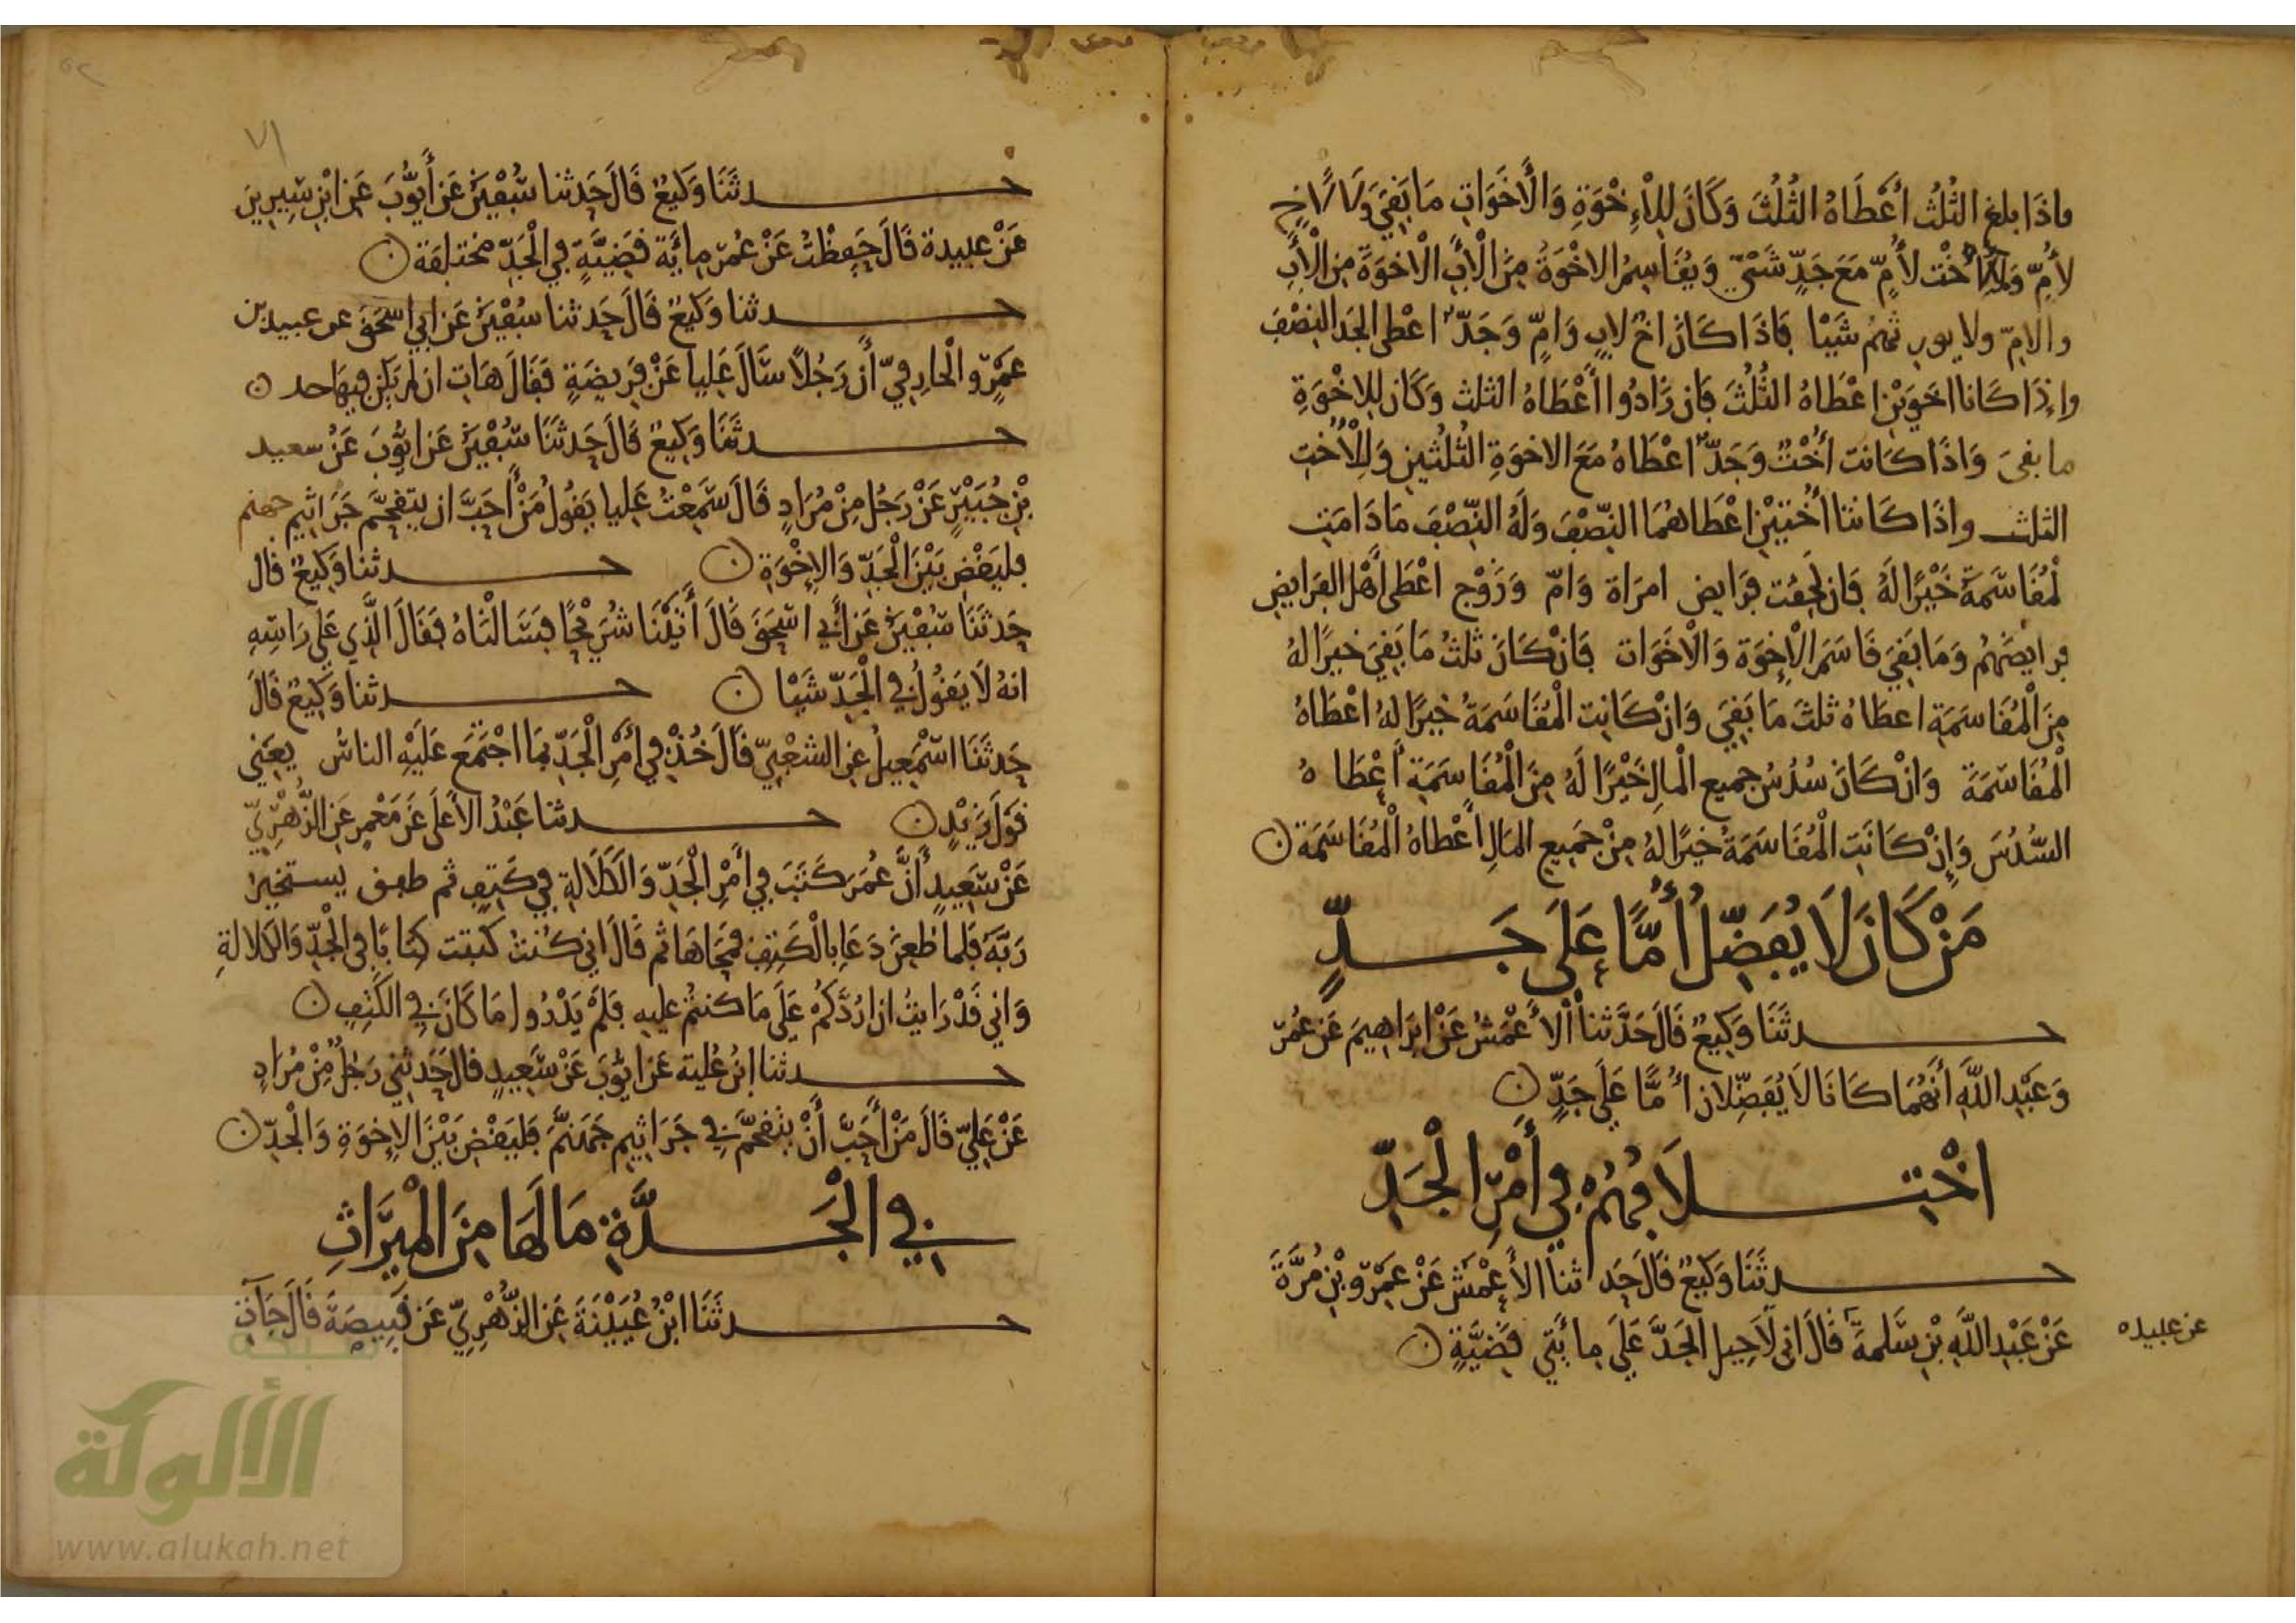 فاذَا بلغ الثُلُثُ أَعْطَاهُ الثُلُثَ وَكَانَ لِلْإِخْوَةِ وَالْأَخَوَاتِ مَا بَقِيَ وَلَا لِأَخٍ
لأُمٍّ وَلَا لأُخْت لأُمّ مَعَ جَدٍّ شَىْءٌ وَيُقَاسِمُ الاخْوَةُ مِنَ الْأَبِ الْاخْوَةَ مِنَ الْأَبِ
والامّ ولا يورثهُم شَيْا فَاذَا كَانَ اخٌ لابٍ وَامٍّ وَجَدٌّ اعْطى الجَد النِصْفَ
واِذَا كَانا اخَوَيْنِ اعْطَاهُ الثُلُثَ فَان زَادُوا أَعْطَاهُ الثلث وَكَان لِلاِخْوَةِ
ما بقىَ وَاذَا كَانت أُخْتٌ وَجَدٌّ اعْطَاهُ مَعَ الاخوَةِ الثُلُثَيْنِ وَلِلْأُخْتِ
الثلث واذَا كَانتا أُخْتَيْنِ اعْطَاهُمَا النِّصْفَ وَلَهُ النِّصْفَ مَا دَامَتِ
لْمُقَاسَمَةَ خَيْرًا لَهُ فَان لَحِقَت فَرَايض امرَاة وَامّ وَزَوْج اعْطَى أَهْلَ الفَرَايضِ
فرايضَهُم وَمَا بَقِيَ قَاسَمَ الْإِخوَة وَالْاخَوَات فَانْ كَانَ ثلثُ مَا بَقِيَ خيرًا لهُ
مِنَ الْمُقَاسَمَةِ اعطَاهُ ثلثَ مَا بَقِيَ وَانْ كَانِت الْمُقَاسَمَةُ خيرًا لهُ اعْطَاهُ
الْمُقَاسَمَةَ وَانْ كَانَ سُدُسُ جميع الْمالِ خَيْرًا لَهُ مِنَ الْمُقَاسَمَةِ أَعْطَاهُ
السُّدُسَ وَإِنْ كَانَتِ الْمُقَاسَمَةُ خيرًا لهُ مِنْ جَمِيعِ المَالِ أَعْطاهُ الْمُقَاسَمَة ن
مَنْ كَانَ لَا يُفَضِّلُ أُمًّا عَلَى جَدٍّ
حدثَنَا وَكِيعٌ قَالَ حَدَّثنا الْأَعْمَشُ عَنْ ابرَاهِيمَ عَن عُمَرَ
وَعَبْدِ اللَّهِ أَنَّهُمَا كَانَا لَا يُفَضِّلَانِ أُمًّا عَلَى جَدٍّ ن
اخْتِلَافُهُمْ فِي أَمْرِ الْجَدِّ
حدثَنَا وَكِيعٌ قَالَ حَدثنا الأَعْمَش عَنْ عَمْرو بْنِ مُرَّةَ
عَنْ عَبْدِ اللَّهِ بْنِ سَلمةَ قَالَ انى لَاحِيل الجَدَّ عَلَى مِائَتَي قَضِيَّةٍ ن
عن عبيده
٧١
حدثَنَا وَكِيعٌ قَالَ حَدثنا سُفْيَنُ عَنْ أَيُّوبَ عَنِ ابْنِ سِيرِينَ
عَنْ عبِيدة قَالَ حَفِظْتُ عَنْ عُمَر مِائَة قَضِيَّةٍ فِي الْجَدِّ مختلِفَة ن
حدثنا وَكِيعٌ قَالَ حَدثنا سُفْيَنُ عَن ابِي اسْحَقَ عن عبيد بن
عَمْرٍو الْخَارِفيِّ أَنَّ رَجُلًا سَالَ عَلِيا عَنْ فَرِيضَةٍ فَقَالَ هَاتِ ان لم يَكن فيهَا جد ن
حدثَنَا وَكِيعٌ قَالَ حَدثَنَا سُفْيَنُ عَن ايُّوبَ عَنْ سعيد
بْنِ جُبَيْرٍ عَنْ رَجُلٍ مِنْ مُرَادٍ قَالَ سَمِعْتُ عَلِيا يَقُولُ مَنْ أَحَبَّ ان يتقحَّم جَرَاثيم جهنم
فليَقْضِ بَيْنَ الْجَدِّ وَالإِخْوَةِ ن حدثنا وَكِيعٌ قال
حَدثَنَا سُفْيَنُ عَن أَبِي اسْحَقَ قَالَ أَتَيْنَا شُرَيْحًا فَسَالْنَاهُ فَقَالَ الَّذِي عَلى رَاسِهِ
انهُ لَا يَقُولُ فِي الْجَدِّ شَيْا ن حدثنا وَكِيعٌ قَالَ
حَدثَنَا اسْمَعِيلُ عن الشعْبِيّ قَالَ خُذْ فِي أَمْرِ الْجَدِّ بِمَا اجْتَمَعَ عَلَيْهِ الناسُ يعْنِى
قَوْلَ زَيْدٍ ن حدثنا عَبْدُ الأَعْلَى عَنْ مَعْمَرٍ عَنِ الزُّهْرِيِّ
عَنْ سَعِيدٍ أَنَّ عُمَرَ كَتَبَ فِي أَمْرِ الْجَدِّ وَالْكَلَالةِ فِي كَتِفٍ ثم طفق يستخير
رَبَّهُ فَلما طُعِنَ دَعَا بِالْكَتِفِ فَمَحَاهَا ثم قَالَ اني كُنتُ كَتبت كِتَابًا في الْجَدِّ وَالكلَالةِ
وَانِي قَدْ رَايتُ ان ارُدَّكُمْ عَلَى مَا كنتُم عليهِ فَلَمْ يَدْرُوا مَا كَانَ فِي الكَتِفِ ن
حدثنا ابْنُ عُلية عَن ايُّوبَ عَنْ سَعِيدٍ قالَ حَدثني رَجُلٌ مِنْ مُرَادٍ
عَنْ عَلِيٍّ قَالَ مَنْ أَحَبَّ أَنْ يتقحَّمَ فِي جَرَاثِيمِ جَهَنَّمَ فَليَقْضِ بَيْنَ الإِخوَةِ وَالْجَدِّ ن
فِي الْجَدَّةِ مَا لَهَا مِنَ الْمِيرَاثِ
حدثَنَا ابْنُ عُيَيْنَةَ عَنِ الزُّهْرِيِّ عَن قَبِيصَةَ قَالَ جَآتِ
شبكة
الألوكة
www.alukah.net